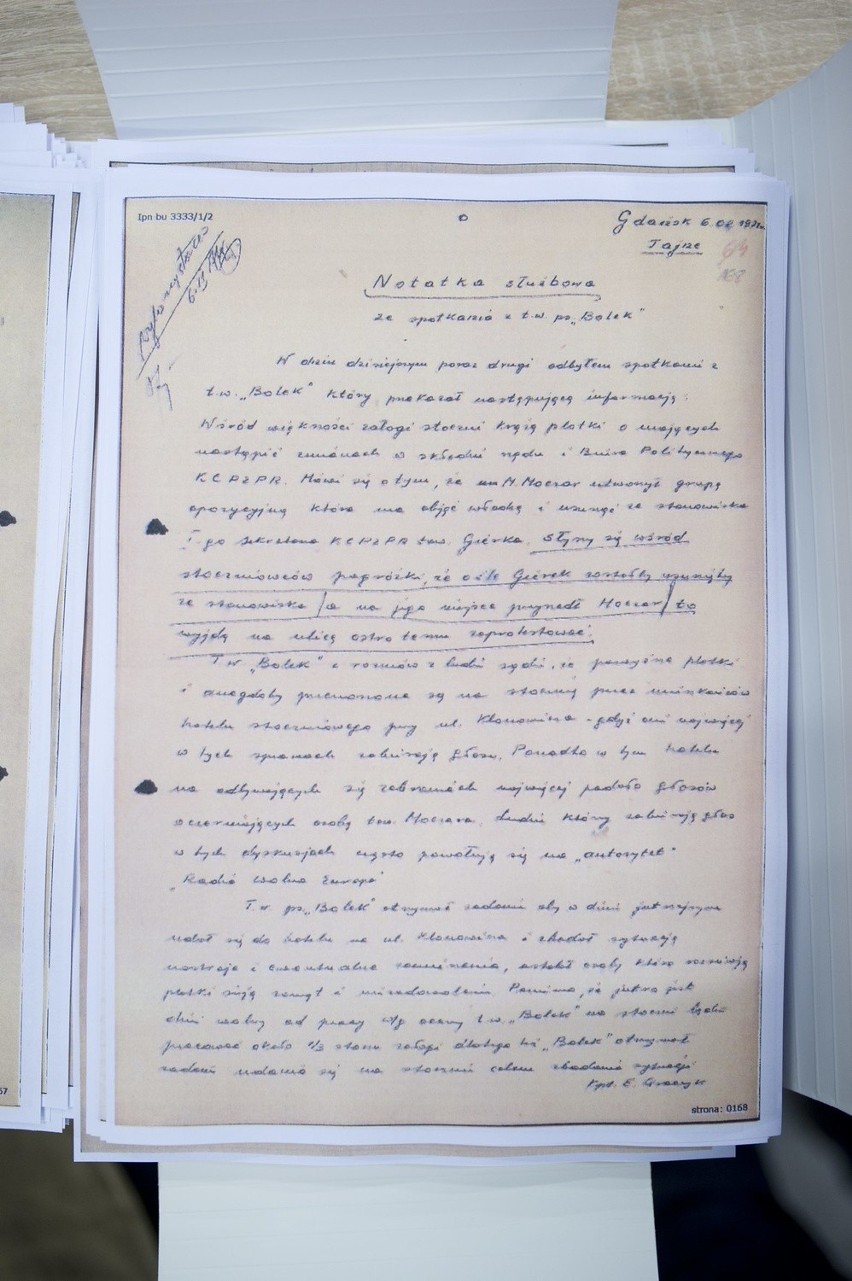 Ipn bu 3333/1/2
Gdańsk 6.02 1971r.
Tajne
64
Notatka służbowa
ze spotkania z t.w. ps. „Bolek"
W dniu dzisiejszym poraz drugi odbyłem spotkanie z
t.w. „Bolek" który przekazał następującą informację:
Wśród większości załogi stoczni krążą plotki o mających
nastąpić zmianach w składzie rządu i Biura Politycznego
KC PZPR. Mówi się o tym, że M. Moczar utworzył grupę
opozycyjną która ma objąć władzę i usunąć ze stanowiska
I-go sekretarza KC PZPR tow. Gierka. Słyszy się wśród
stoczniowców pogróżki, że o ile Gierek zostałby usunięty
ze stanowiska (a na jego miejsce przyszedł Moczar) to
wyjdą na ulicę ostro temu zaprotestować.
T.W. „Bolek" z rozmów z ludźmi sądzi, że powyższe plotki
i anegdoty przenoszone są na stocznię przez mieszkańców
hotelu stoczniowego przy ul. Klonowicza - gdyż oni najwięcej
w tych sprawach zabierają głosu. Ponadto w tym hotelu
na odbywających się zebraniach najwięcej padało głosów
oczerniających osobę tow. Moczara. Ludzie którzy zabierają głos
w tych dyskusjach często powołują się na „autorytet"
„Radia Wolna Europa"
T.w. ps. „Bolek" otrzymał zadanie aby w dniu jutrzejszym
udał się do hotelu na ul. Klonowicza i zbadał sytuację
nastroje i ewentualne zamierzenia, ustalił osoby które rozsiewają
plotki sieją zamęt i niezadowolenie. Pomimo, że jutro jest
dzień wolny od pracy wg oceny t.w. „Bolek" na stoczni będzie
pracować około 1/3 stanu załogi dlatego też „Bolek" otrzymał
zadanie udania się na stocznię celem zbadania sytuacji
Kpt. E. Graczyk
strona: 0168